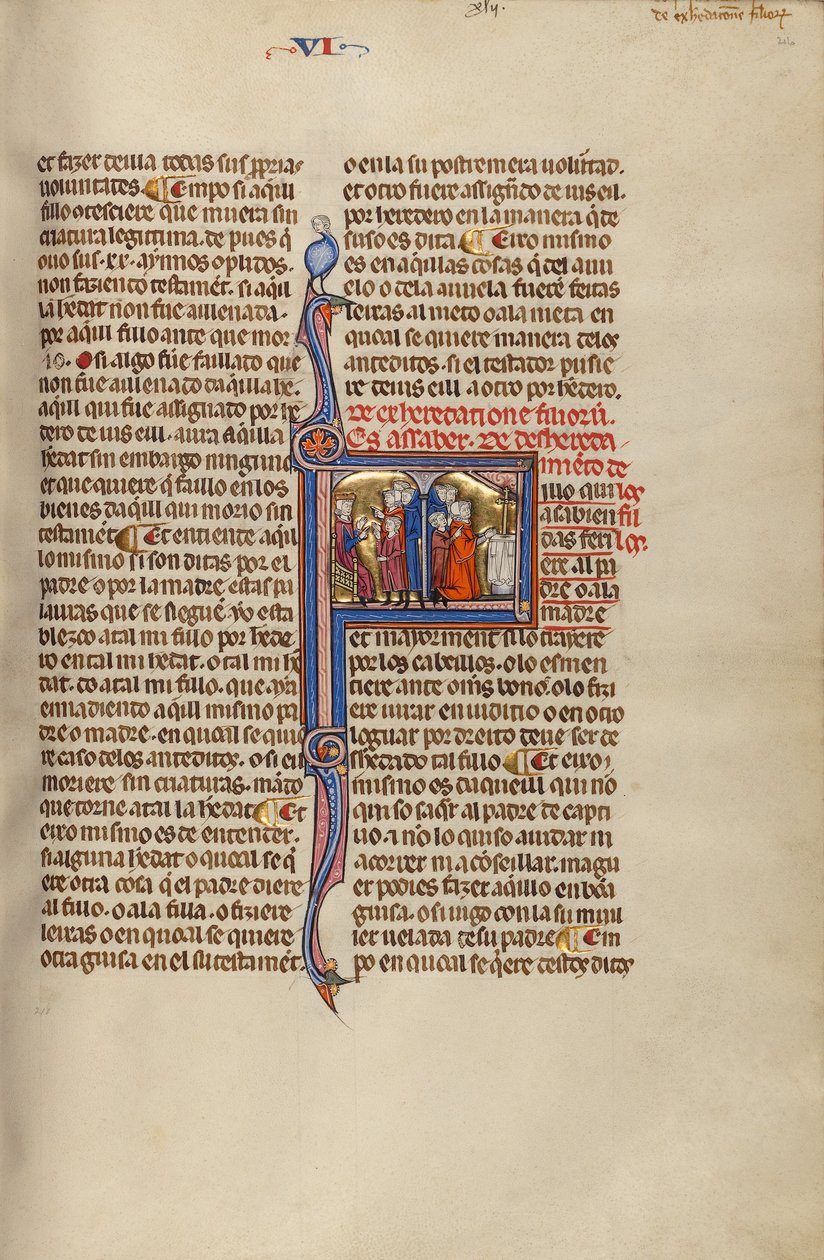 xlv.
de exhedacõne filiorꝝ
216
VI
et fazer deuia todas sus ꝓpria-
uoluntades. ¶ Empo si aq̃ll
fillo ↄtesciere que muera sin
criatura legittima. de pues q̃
ouo sus .xx. aỹnnos ↄplidos.
non faziendo testamẽt. si aq̃ll
la hẽdat non fue allenada.
por aq̃ll fillo ante que mor
io. O si algo fue faillado que
non fue allenado daq̃lla he.
aq̃ll qui fue assignado por he
dero de uis eill. aura aq̃lla
hẽdat sin embargo ninguno
et que quiere q̃ faillo en los
bienes daq̃ll qui morio sin
testamẽt ¶ Et entiente aq̃ll
lo mismo si son ditas por el
padre o por la madre estas pa
lauras que se sieguẽ. yo esta
blezco a tal mi fillo por hẽde
ro en tal mi hẽdat. o tal mi hẽ
dat. do a tal mi fillo. que aya
ennadiendo aq̃ll mismo pa
dre o madre. en qual se quie
re caso delos anteditos. o si eill
moriere sin criaturas. mãdo
que torne a tal la hẽdat ¶ Et
eixo mismo es de entender.
si alguna hẽdat o qual se q̃
ere otra cosa q̃ el padre diere
al fillo. o ala filla. o fiziere
leixas o en qual se quiere
otra guisa en el su testamẽt.
o en la su postremera uolũtad.
et otro fuere assignado de uis eill.
por heredero en la manera q̃ de
suso es dita ¶ Eixo mismo
es en aq̃llas cosas q̃ del auu
elo o dela auuela fuerẽ feitas
leixas al nieto o ala nieta en
qual se quiere manera delos
anteditos. si el testador pusie
re de uis eill a otro por hẽdero.
De exheredatione filiorũ.
Es assaber. De deshereda
miẽto de
fillos.
illo qui
a sabien
das feri
ere al pa
dre o ala
madre
et mayorment si lo trayere
por los cabeillos. o lo esmen
tiere ante oms bonos. o lo fizi
ere iurar en iuditio o en otro
loguar por dreito deue ser de
sheẽdado tal fillo ¶ Et eixo
mismo es daqueill qui nõ
quiso saq̃r al padre de capti
uo. ⁊ nõ lo quiso aiudar ni
acorrer ni aↄseillar. magu
er podies fazer aq̃llo en bõa
guisa. o si iugo con la su mui
ler uelada de su padre ¶ Em
po en qual se q̃ere destos ditos